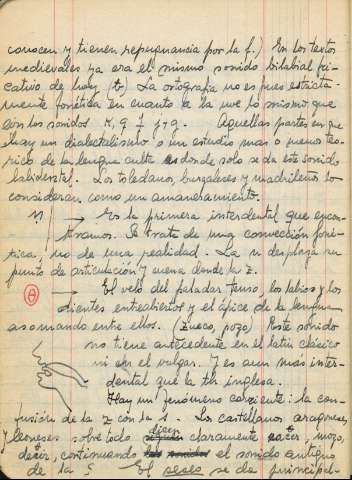 conocen y tienen repugnancia por la f.) En los textos
medievales ya era el mismo sonido bilabial fri-
cativo de hoy (ƀ) La ortografía no es pues estricta-
mente fonética en cuanto a la uve lo mismo que
con los sonidos K, q j y g. Aquellas partes en que
hay un dialectalismo o un estudio mas o menos teo-
rico de la lengua culta es donde solo se da este sonido
labidental. Los toledanos, burgaleses y madrileños lo
consideran como un amaneramiento.
→ Es la primera interdental que encon-
tramos. Se trata de una convección foné-
tica, no de una realidad. La n desplaza su
punto de articulación y suena donde la z.
θ → El velo del paladar tenso, los labios y los
dientes entreabiertos y el ápice de la lengua
asomando entre ellos. (zueco, pozo) Este sonido
no tiene antecedente en el latín clásico
ni en el vulgar. Y es aun más inter-
dental que la th inglesa.
Hay un fenómeno corriente: la con-
fusión de la z con la s. Los castellanos, aragoneses,
y leoneses sobre todo dicen claramente mozo,
decir, continuando el sonido antiguo
de la ç El seseo se da principal-